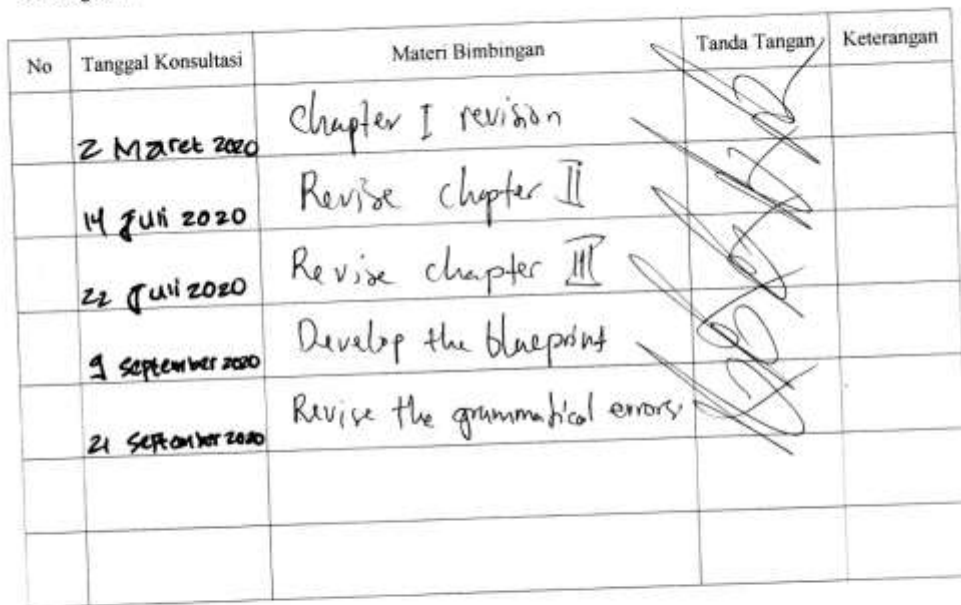 No Tanggal Konsultasi Materi Bimbingan Tanda Tangan Keterangan
2 Maret 2020 Chapter I revision
14 Juli 2020 Revise chapter II
22 Juli 2020 Revise chapter III
9 September 2020 Develop the blueprint
21 September 2020 Revise the grammatical errors.